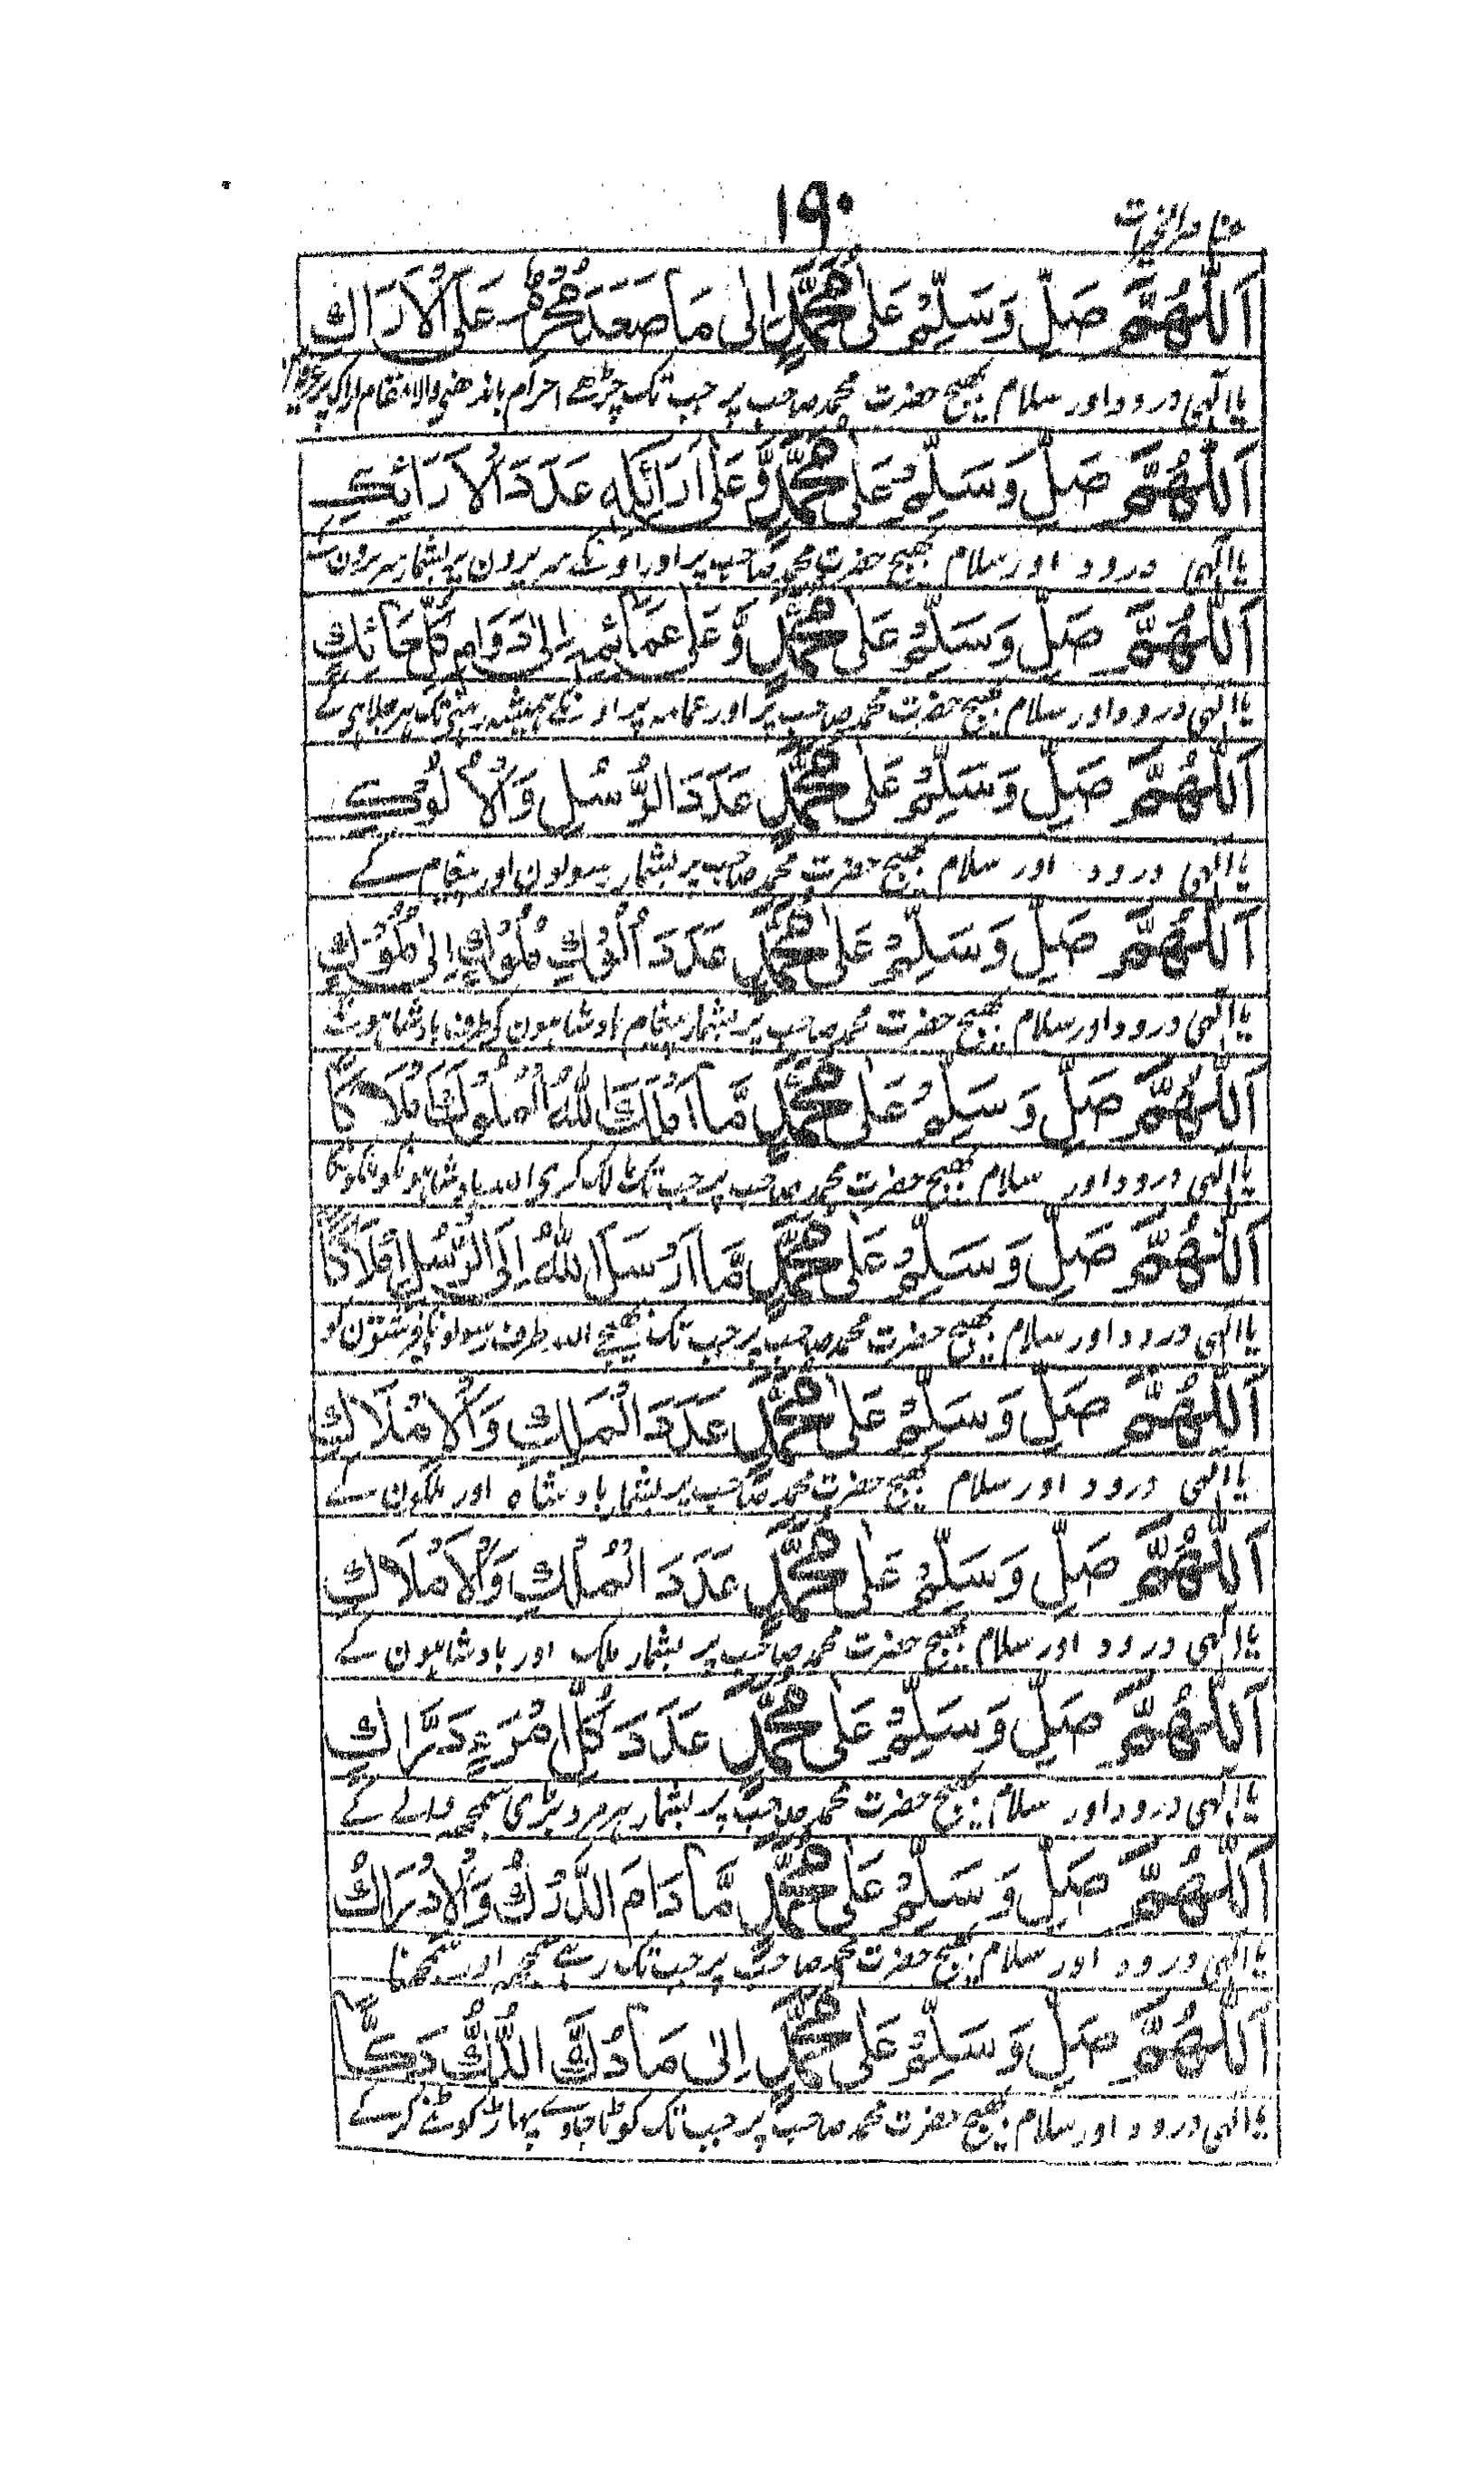 ۱۹۰
اَللّٰهُمَّ صَلِّ وَسَلِّمْ عَلٰى مُحَمَّدٍ اِلٰى مَا صَعَدَ مُحْرِمٌ عَلَى الْاَرَاكِ
یا الٰہی درود اور سلام بھیج حضرت محمد صاحب پر جب تک چڑھے احرام باندھنی والا مقام اراک پر
اَللّٰهُمَّ صَلِّ وَسَلِّمْ عَلٰى مُحَمَّدٍ وَّعَلٰى اَرَائِكِهٖ عَدَدَ الْاَرَائِكِ
یا الٰہی درود اور سلام بھیج حضرت محمد صاحب پر اور اونکے سریرون پر بشمار سریرون کے
اَللّٰهُمَّ صَلِّ وَسَلِّمْ عَلٰى مُحَمَّدٍ وَّعَلٰى عَمَائِمِهٖ اِلٰى دَوَامِ كُلِّ حَائِكٍ
یا الٰہی درود اور سلام بھیج حضرت محمد صاحب پر اور عمامہ پر اونکے ہمیشہ رہنی تک ہر جلاہی کے
اَللّٰهُمَّ صَلِّ وَسَلِّمْ عَلٰى مُحَمَّدٍ عَدَدَ الرُّسُلِ وَالْاُلُوْكِ
یا الٰہی درود اور سلام بھیج حضرت محمد صاحب پر بشمار رسولون اور پیغام کے
اَللّٰهُمَّ صَلِّ وَسَلِّمْ عَلٰى مُحَمَّدٍ عَدَدَ اُلُوْكِ مُلُوْكٍ اِلٰى مُلُوْكٍ
یا الٰہی درود اور سلام بھیج حضرت محمد صاحب پر بشمار پیغام بادشاہون کی طرف بادشاہون
اَللّٰهُمَّ صَلِّ وَسَلِّمْ عَلٰى مُحَمَّدٍ مَّا اَمْلَكَ اللّٰهُ الْمُلُوْكَ اَمْلَاكًا
یا الٰہی درود اور سلام بھیج حضرت محمد صاحب پر جب تک مالک کری اللہ بادشاہونکو
اَللّٰهُمَّ صَلِّ وَسَلِّمْ عَلٰى مُحَمَّدٍ مَّا اَرْسَلَ اللّٰهُ اِلَى الرُّسُلِ اَمْلَاكًا
یا الٰہی درود اور سلام بھیج حضرت محمد صاحب پر جب تک بھیجے اللہ طرف رسولونکے فرشتون کو
اَللّٰهُمَّ صَلِّ وَسَلِّمْ عَلٰى مُحَمَّدٍ عَدَدَ الْمَلِكِ وَالْاَمْلَاكِ
یا الٰہی درود اور سلام بھیج حضرت محمد صاحب پر بشمار بادشاہ اور ملکون کے
اَللّٰهُمَّ صَلِّ وَسَلِّمْ عَلٰى مُحَمَّدٍ عَدَدَ الْمُلْكِ وَالْاَمْلَاكِ
یا الٰہی درود اور سلام بھیج حضرت محمد صاحب پر بشمار ملک اور بادشاہون کے
اَللّٰهُمَّ صَلِّ وَسَلِّمْ عَلٰى مُحَمَّدٍ عَدَدَ كُلِّ امْرَءٍ دَرَّاكٍ
یا الٰہی درود اور سلام بھیج حضرت محمد صاحب پر بشمار ہر مرد بڑی سمجھ والے کے
اَللّٰهُمَّ صَلِّ وَسَلِّمْ عَلٰى مُحَمَّدٍ مَّا دَامَ الدَّرْكُ وَالْاِدْرَاكُ
یا الٰہی درود اور سلام بھیج حضرت محمد صاحب پر جب تک رہے سمجھ اور سمجھنا
اَللّٰهُمَّ صَلِّ وَسَلِّمْ عَلٰى مُحَمَّدٍ اِلٰى مَا دُكَّ الدُّكُّ دَكًّا
یا الٰہی درود اور سلام بھیج حضرت محمد صاحب پر جب تک کوٹا جاوے پہاڑ کوٹنے کرکے